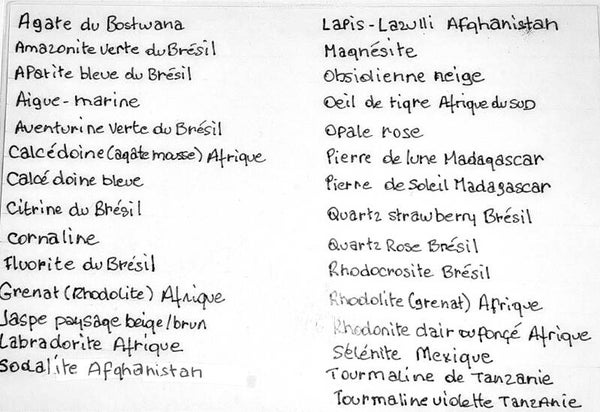 Agate du Bostwana
Amazonite verte du Brésil
APatite bleue du Brésil
Aigue-marine
Aventurine verte du Brésil
Calcédoine (agate mousse) Afrique
Calcédoine bleue
Citrine du Brésil
cornaline
Fluorite du Brésil
Grenat (Rhodolite) Afrique
Jaspe paysage beige/brun
Labradorite Afrique
Sodalite Afghanistan
Lapis-Lazulli Afghanistan
Magnésite
Obsidienne neige
Oeil de tigre Afrique du SUD
Opale rose
Pierre de lune Madagascar
Pierre de Soleil Madagascar
Quartz strawberry Brésil
Quartz Rose Brésil
Rhodocrosite Brésil
Rhodolite (grenat) Afrique
Rhodonite clair ou fonçé Afrique
Sélénite Mexique
Tourmaline de Tanzanie
Tourmaline violette Tanzanie